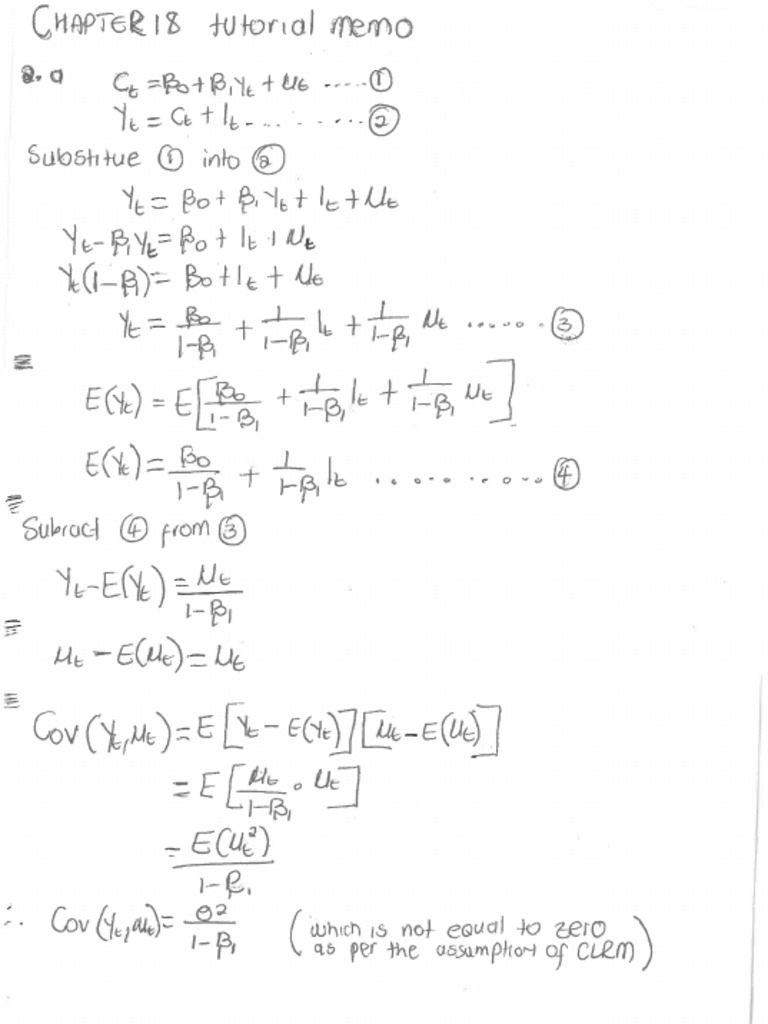 CHAPTER 18 tutorial memo
2. a Ct = β0 + β1Yt + μt ..... ①
Yt = Ct + It - ... ..... ②
Substitue ① into ②
Yt = β0 + β1Yt + It + μt
Yt - β1Yt = β0 + It + μt
Yt(1-β1) = β0 + It + μt
Yt = β0/(1-β1) + 1/(1-β1) It + 1/(1-β1) μt ...... ③
E(Yt) = E[β0/(1-β1) + 1/(1-β1) It + 1/(1-β1) μt]
E(Yt) = β0/(1-β1) + 1/(1-β1) It ........... ④
Subract ④ from ③
Yt - E(Yt) = μt/(1-β1)
μt - E(μt) = μt
Cov(Yt, μt) = E[Yt - E(Yt)][μt - E(μt)]
= E[μt/(1-β1) · μt]
= E(μt²)/(1-β1)
∴ Cov(Yt, μt) = σ2/(1-β1) (which is not equal to zero
as per the assumption of CLRM)